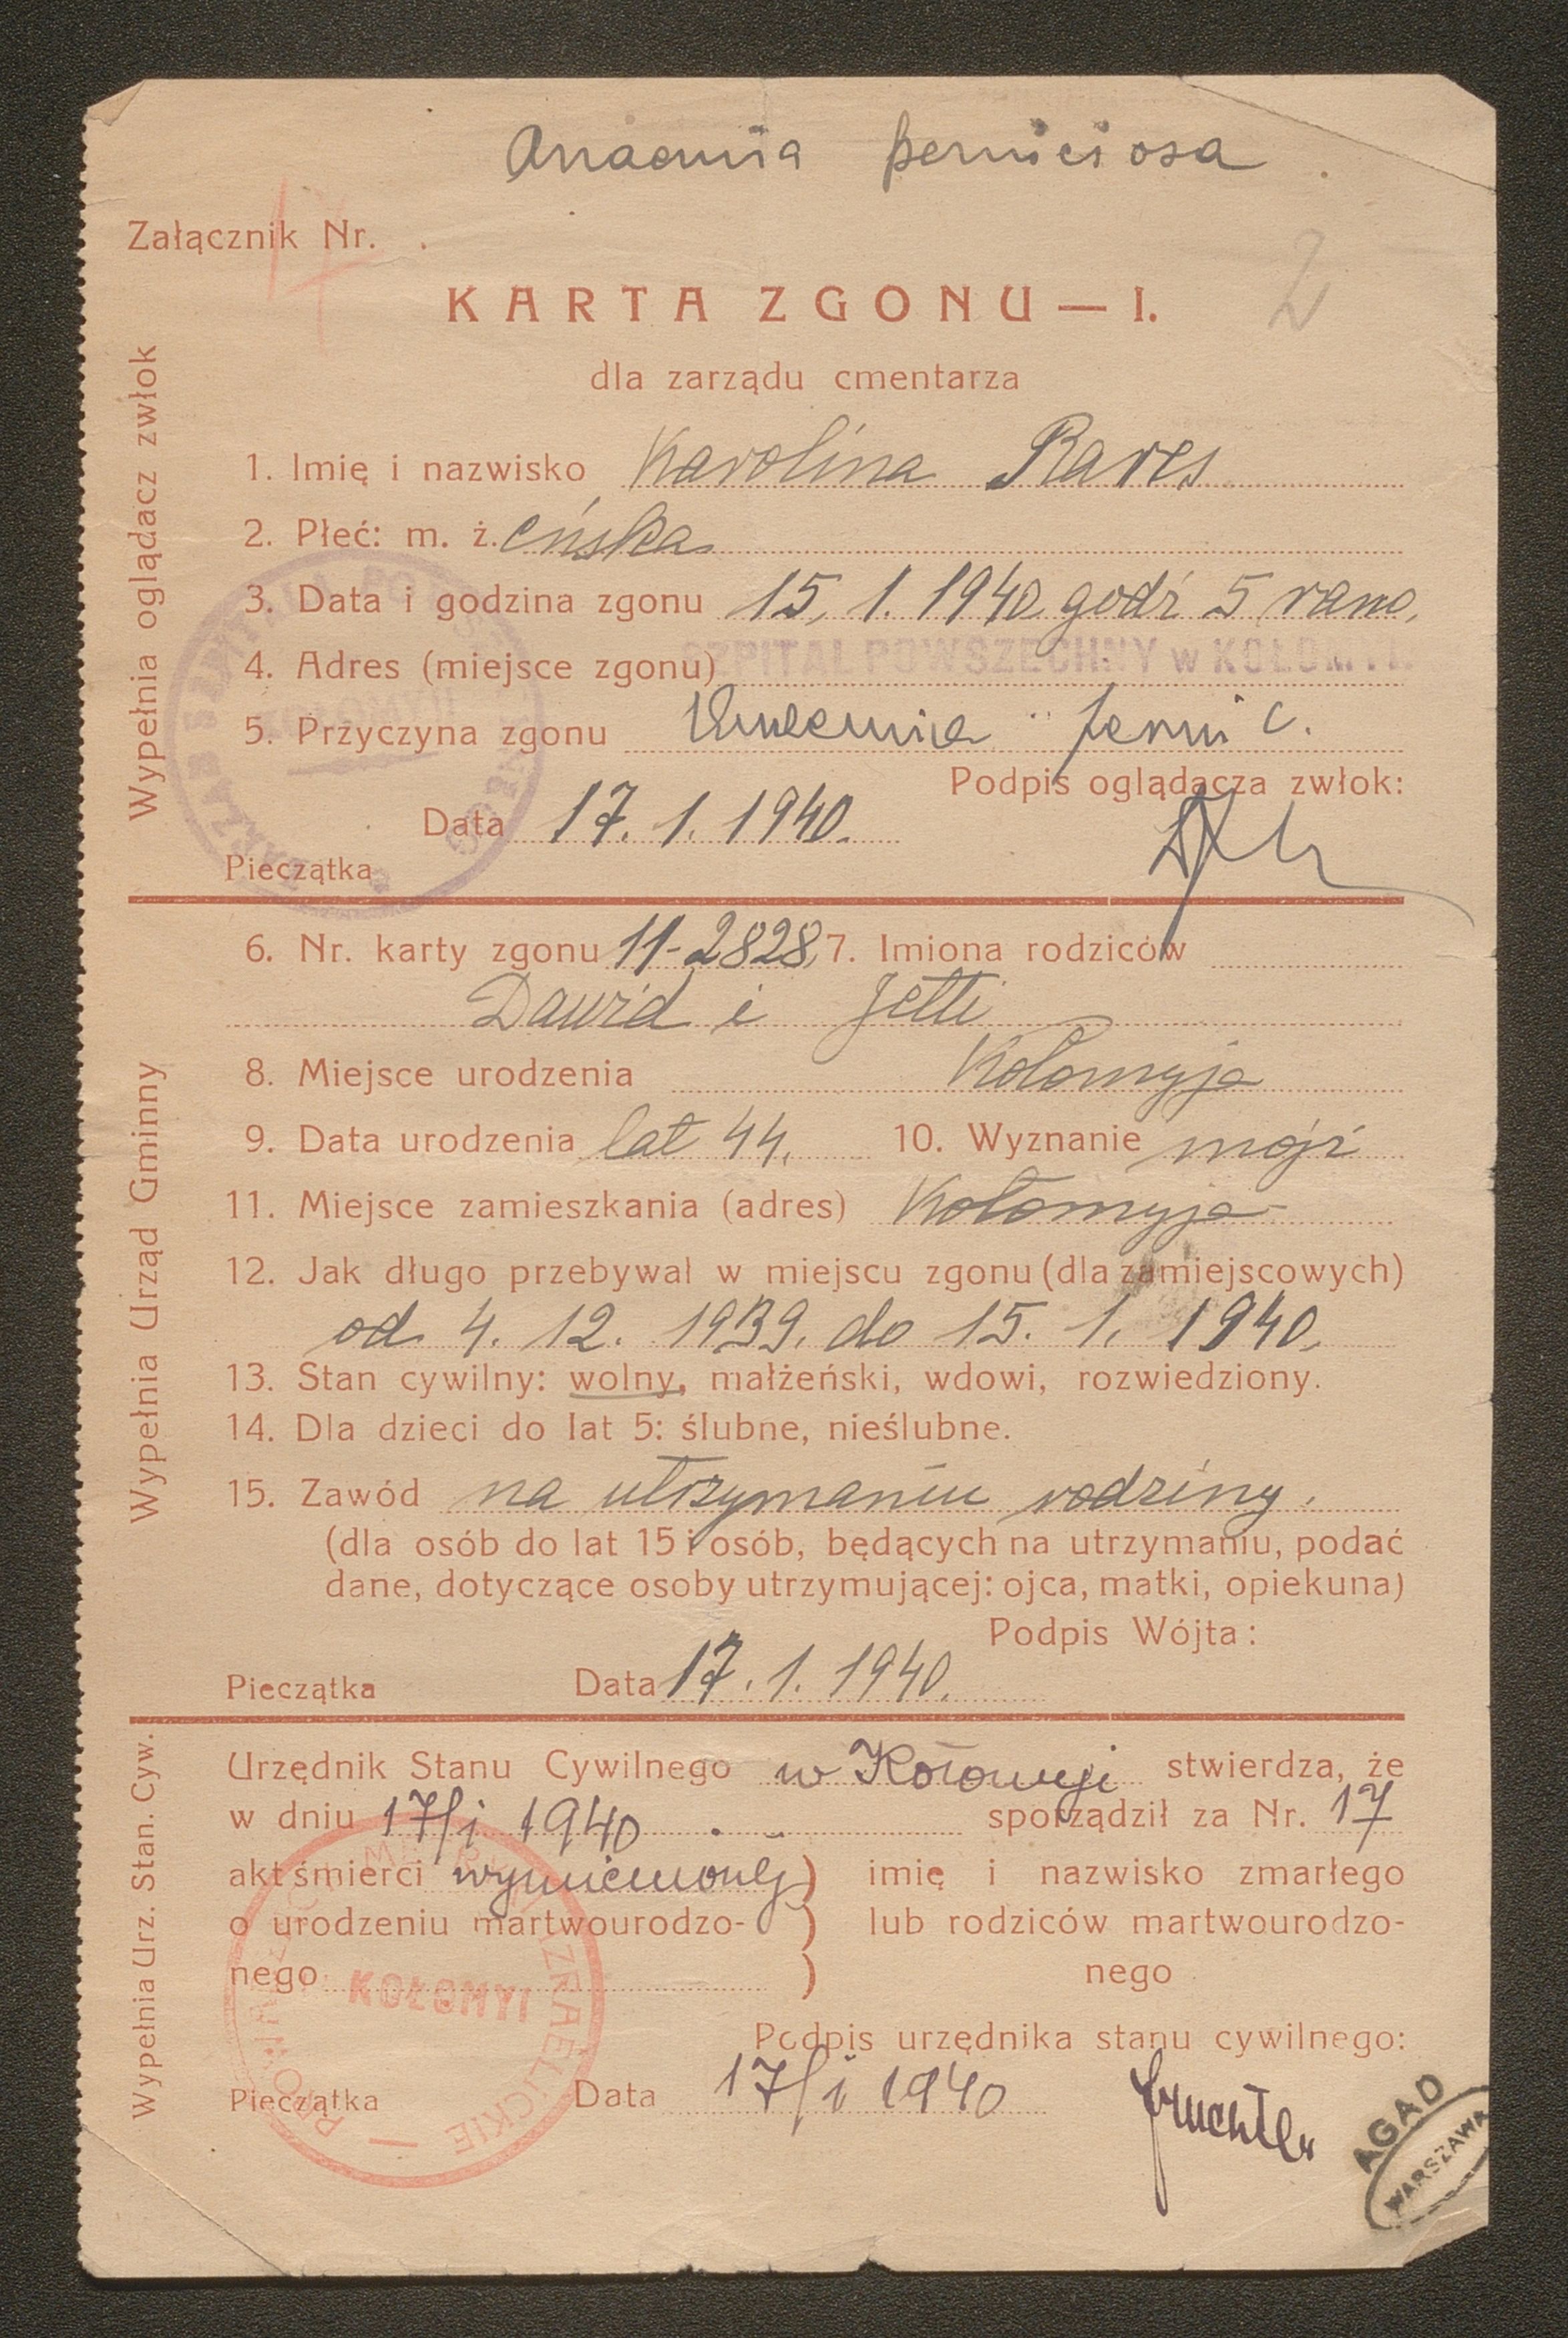 Anaemia perniciosa
Załącznik Nr. .
17
KARTA ZGONU — I.
2
dla zarządu cmentarza
Wypełnia oglądacz zwłok
1. Imię i nazwisko Karolina Rares
2. Płeć: m. ż.eńska
3. Data i godzina zgonu 15. 1. 1940 godź 5 rano,
4. Adres (miejsce zgonu) SZPITAL POWSZECHNY w KOŁOMYI
5. Przyczyna zgonu Anaemia pernic.
Podpis oglądacza zwłok:
Data 17. 1. 1940.
Pieczątka
Wypełnia Urząd Gminny
6. Nr. karty zgonu 11-2828, 7. Imiona rodziców
Dawid i Jetti
8. Miejsce urodzenia Kołomyja
9. Data urodzenia lat 44. 10. Wyznanie mojż
11. Miejsce zamieszkania (adres) Kołomyja
12. Jak długo przebywał w miejscu zgonu (dla zamiejscowych)
od 4. 12. 1939. do 15. 1. 1940.
13. Stan cywilny: wolny, małżeński, wdowi, rozwiedziony.
14. Dla dzieci do lat 5: ślubne, nieślubne.
15. Zawód na utrzymaniu rodziny.
(dla osób do lat 15 i osób, będących na utrzymaniu, podać
dane, dotyczące osoby utrzymującej: ojca, matki, opiekuna)
Podpis Wójta:
Pieczątka Data 17. 1. 1940.
Wypełnia Urz. Stan. Cyw.
Urzędnik Stanu Cywilnego w Kołomyji stwierdza, że
w dniu 17/I 1940 sporządził za Nr. 17
akt śmierci wymienionej ) imię i nazwisko zmarłego
o urodzeniu martwourodzo- ) lub rodziców martwourodzo-
nego ) nego
KOŁOMYI
IZRAELICKIE
Podpis urzędnika stanu cywilnego:
Pieczątka Data 17/I 1940
AGAD
WARSZAWA